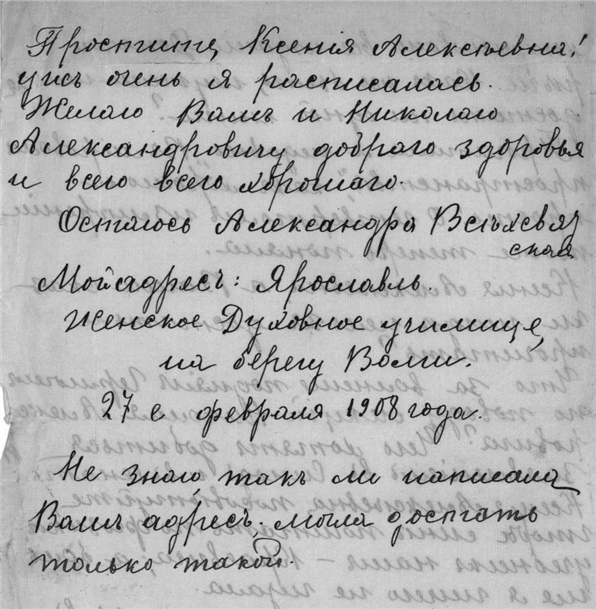 Простите, Ксенія Алексѣевна!
ужъ очень я расписалась.
Желаю Вамъ и Николаю
Александровичу добраго здоровья
и всего всего хорошаго.
Остаюсь Александра Всѣхсвят
ская
Мой адресъ: Ярославль.
Женское Духовное училище,
на берегу Волги.
27 е февраля 1908 года.
Не знаю такъ ли написала
Вамъ адресъ, могла достать
только такой.